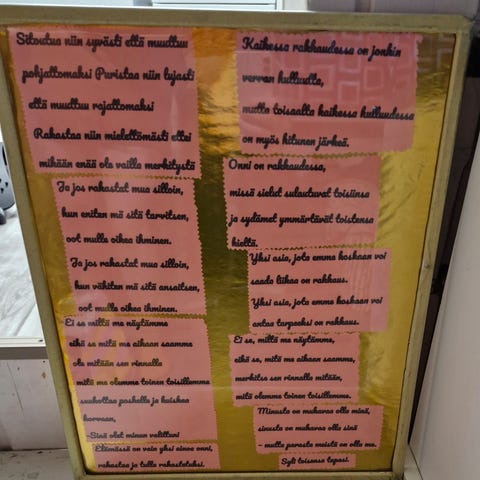 Sitoutua niin syvästi että muuttuu
pohjattomaksi Puristaa niin lujasti
että muuttuu rajattomaksi
Rakastaa niin mielettömästi ettei
mikään enää ole vailla merkitystä
Ja jos rakastat mua silloin,
kun eniten mä sitä tarvitsen,
oot mulle oikea ihminen.
Ja jos rakastat mua silloin,
kun vähiten mä sitä ansaitsen,
oot mulle oikea ihminen.
Ei se miltä me näytämme
eikä se mitä me aikaan saamme
ole mitään sen rinnalla
mitä me olemme toinen toisillemme
suukottaa poskelle ja kuiskaa
korvaan,
-Sinä olet minun valittuni
Elämässä on vain yksi ainoa onni,
rakastaa ja tulla rakastetuksi.
Kaikessa rakkaudessa on jonkin
verran hulluutta,
mutta toisaalta kaikessa hulluudessa
on myös hitunen järkeä.
Onni on rakkaudessa,
missä sielut sulautuvat toisiinsa
ja sydämet ymmärtävät toistensa
kieltä.
Yksi asia, jota emme koskaan voi
saada liikaa on rakkaus.
Yksi asia, jota emme koskaan voi
antaa tarpeeksi on rakkaus.
Ei se, miltä me näytämme,
eikä se, mitä me aikaan saamme,
merkitse sen rinnalla mitään,
mitä olemme toinen toisillemme.
Minusta on mukavaa olla minä,
sinusta on mukavaa olla sinä
- mutta parasta meistä on olla me.
Syli toisensa tapasi.